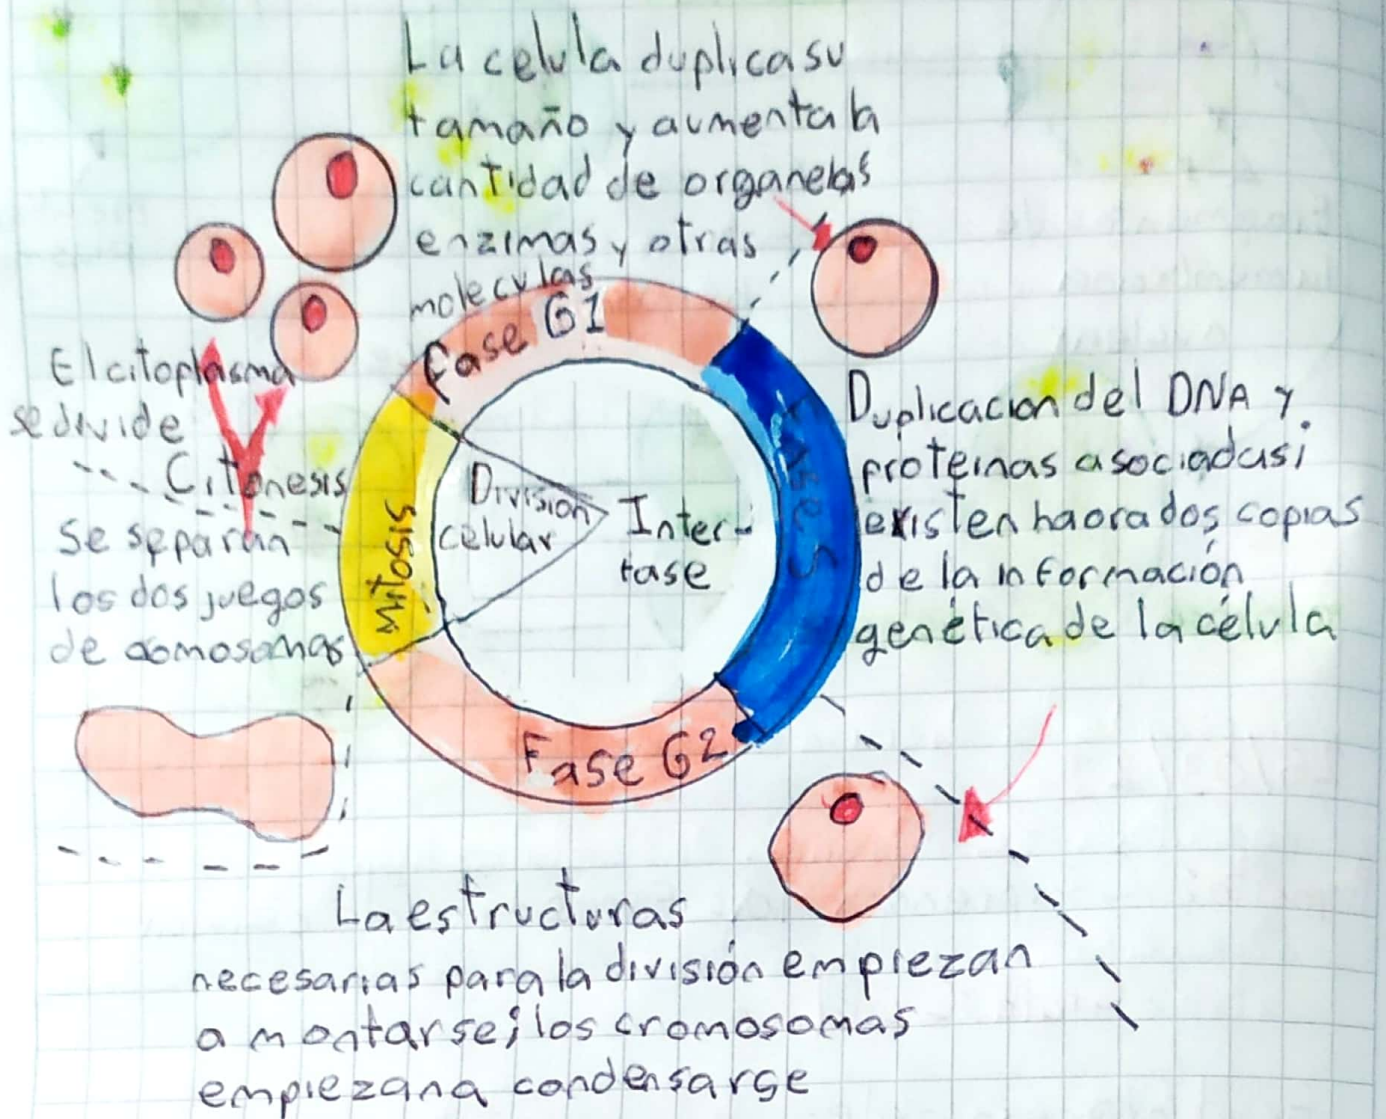 La celula duplica su
tamaño y aumenta la
cantidad de organelas
enzimas y otras
moleculas
Fase G1
El citoplasma
se divide
Citonesis
Se separan
los dos juegos
de comosomas
Mitosis
División
celular
Inter-
fase
Fase S
Duplicacion del DNA y
proteinas asociadas;
existen haora dos copias
de la información
genética de la célula
Fase G2
La estructuras
necesarias para la división empiezan
a montarse; los cromosomas
empiezan a condensarse